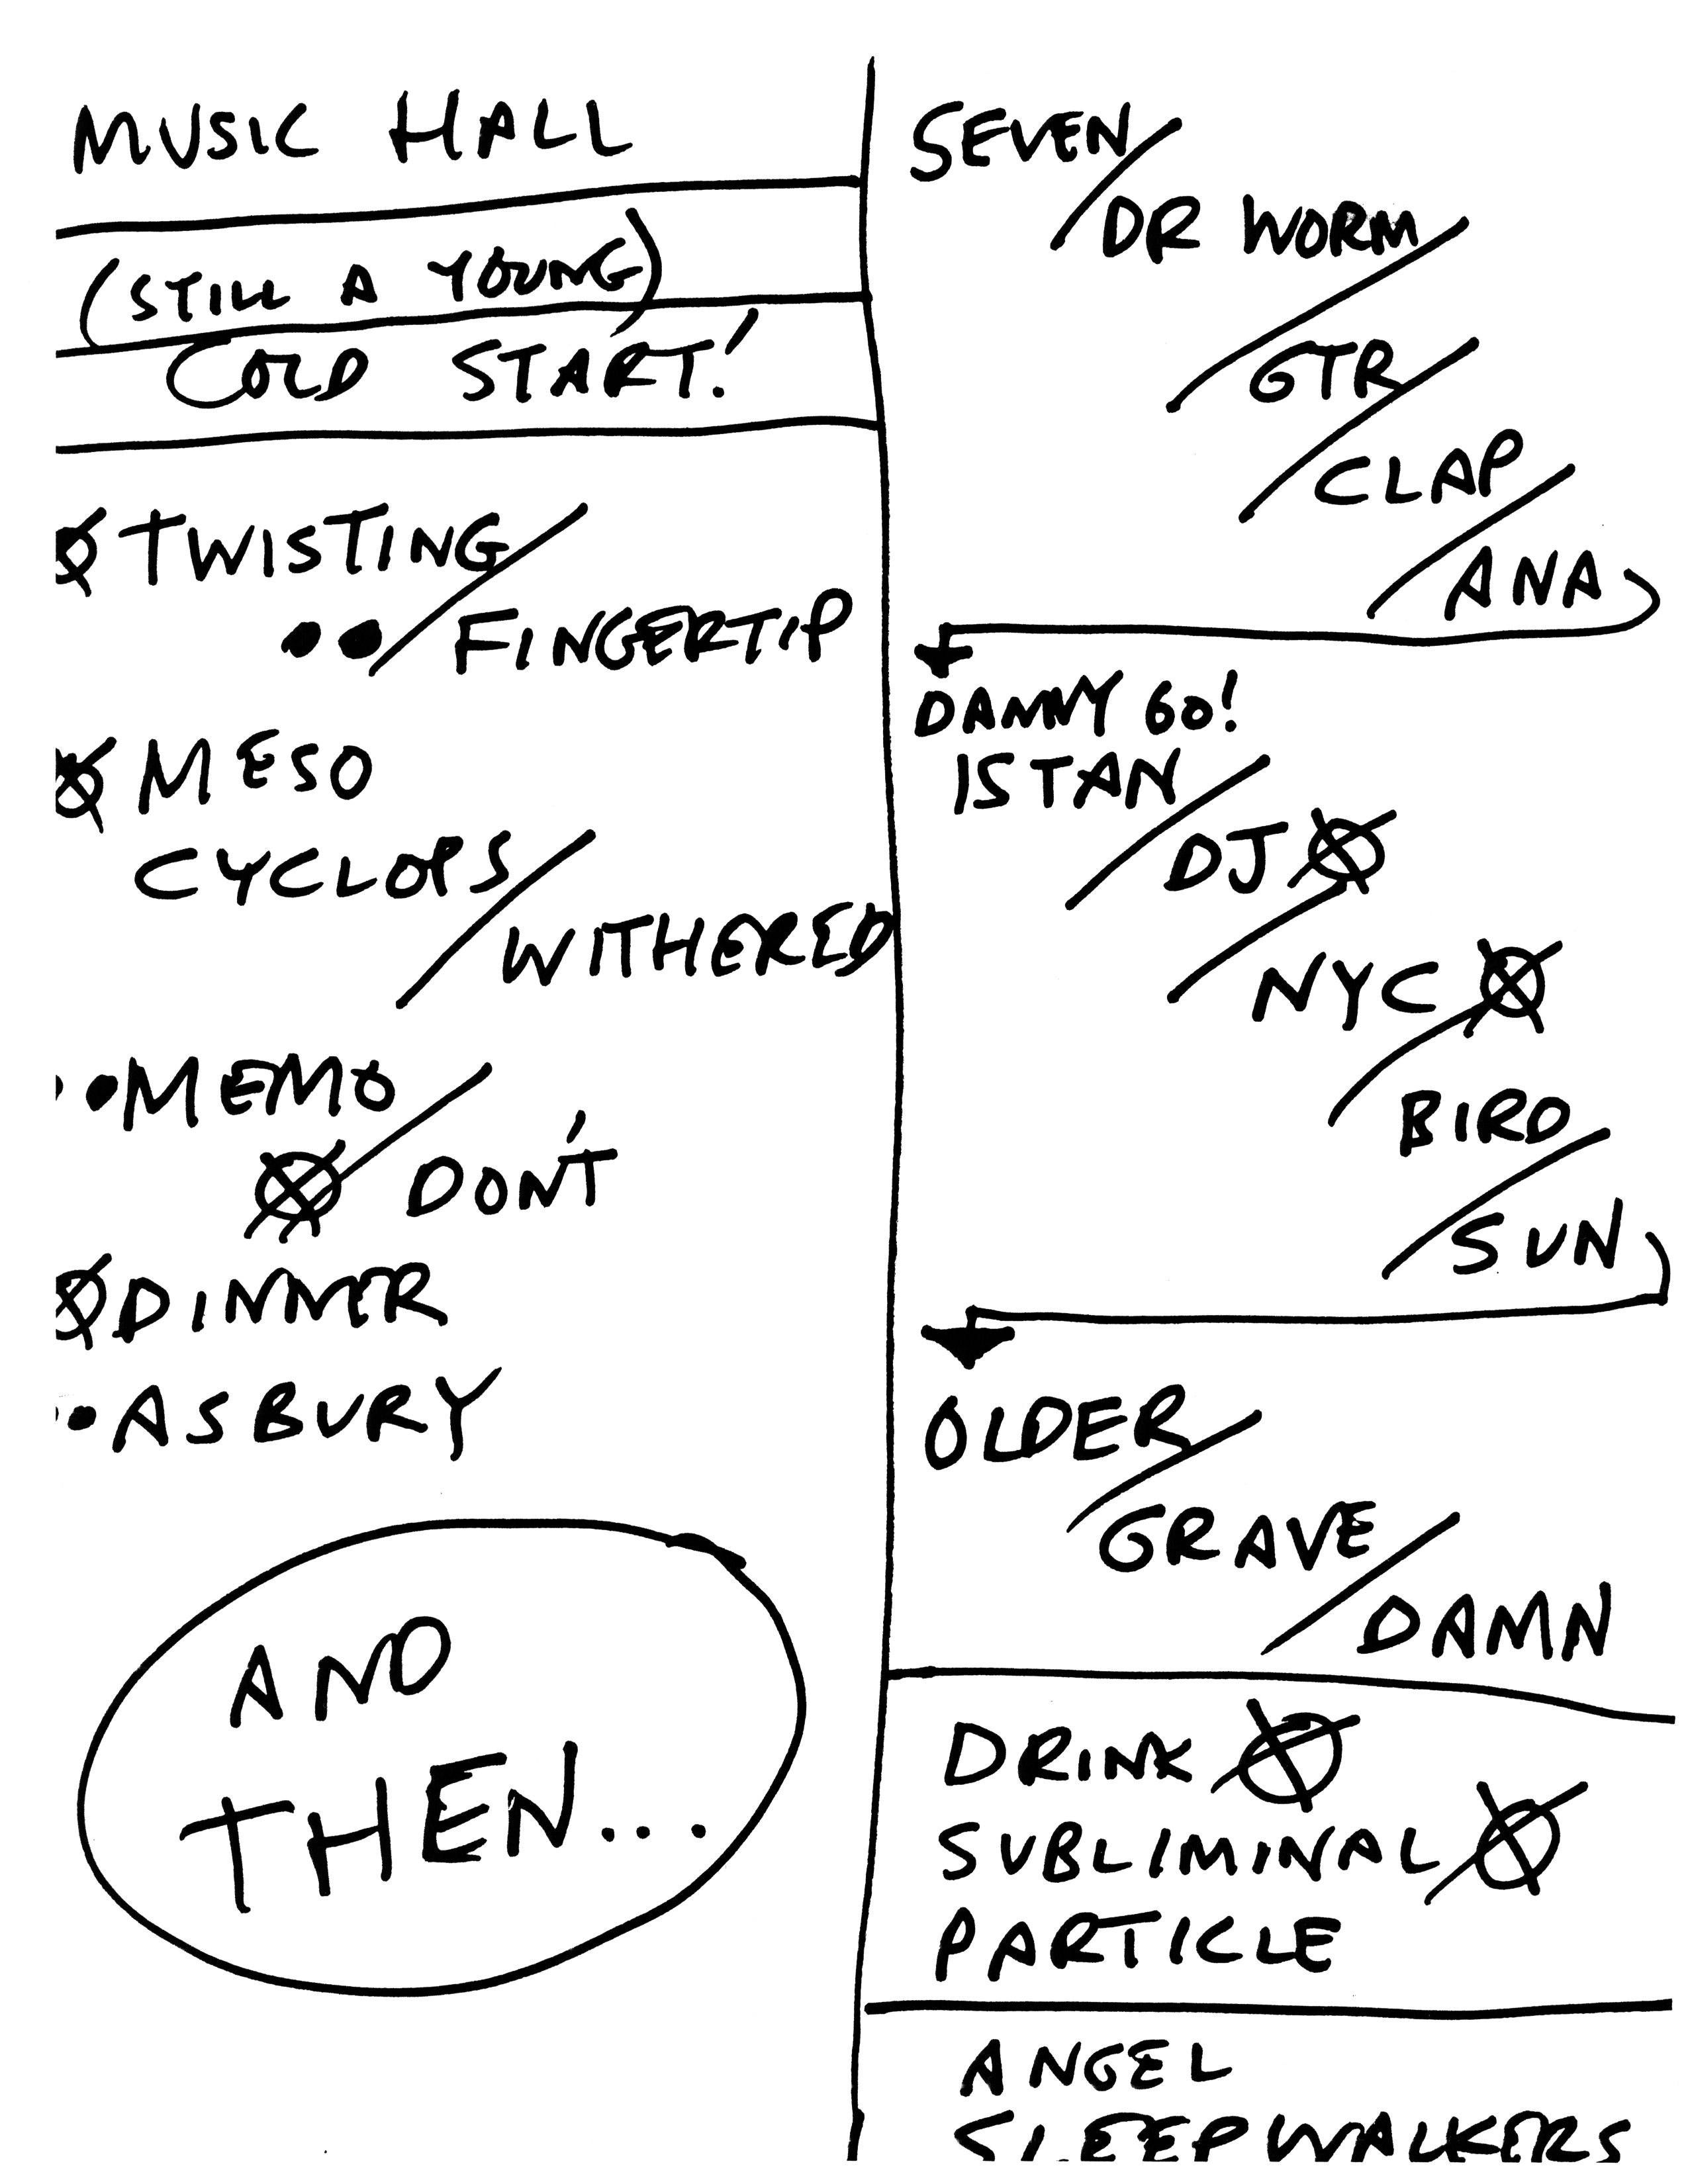 MUSIC HALL
(STILL A YOUNG)
COLD START!
TWISTING/
FINGERTIP
MESO
CYCLOPS/
WITHERED
MEMO/
DON'T
DINNER
ASBURY
AND
THEN...
SEVEN/
DR WORM/
GTR/
CLAP/
ANA
DANNY GO!
ISTAN/
DJ/
NYC/
BIRD/
SUN
OLDER/
GRAVE/
DAMN
DRINK
SUBLIMINAL
PARTICLE
ANGEL
SLEEPWALKERS